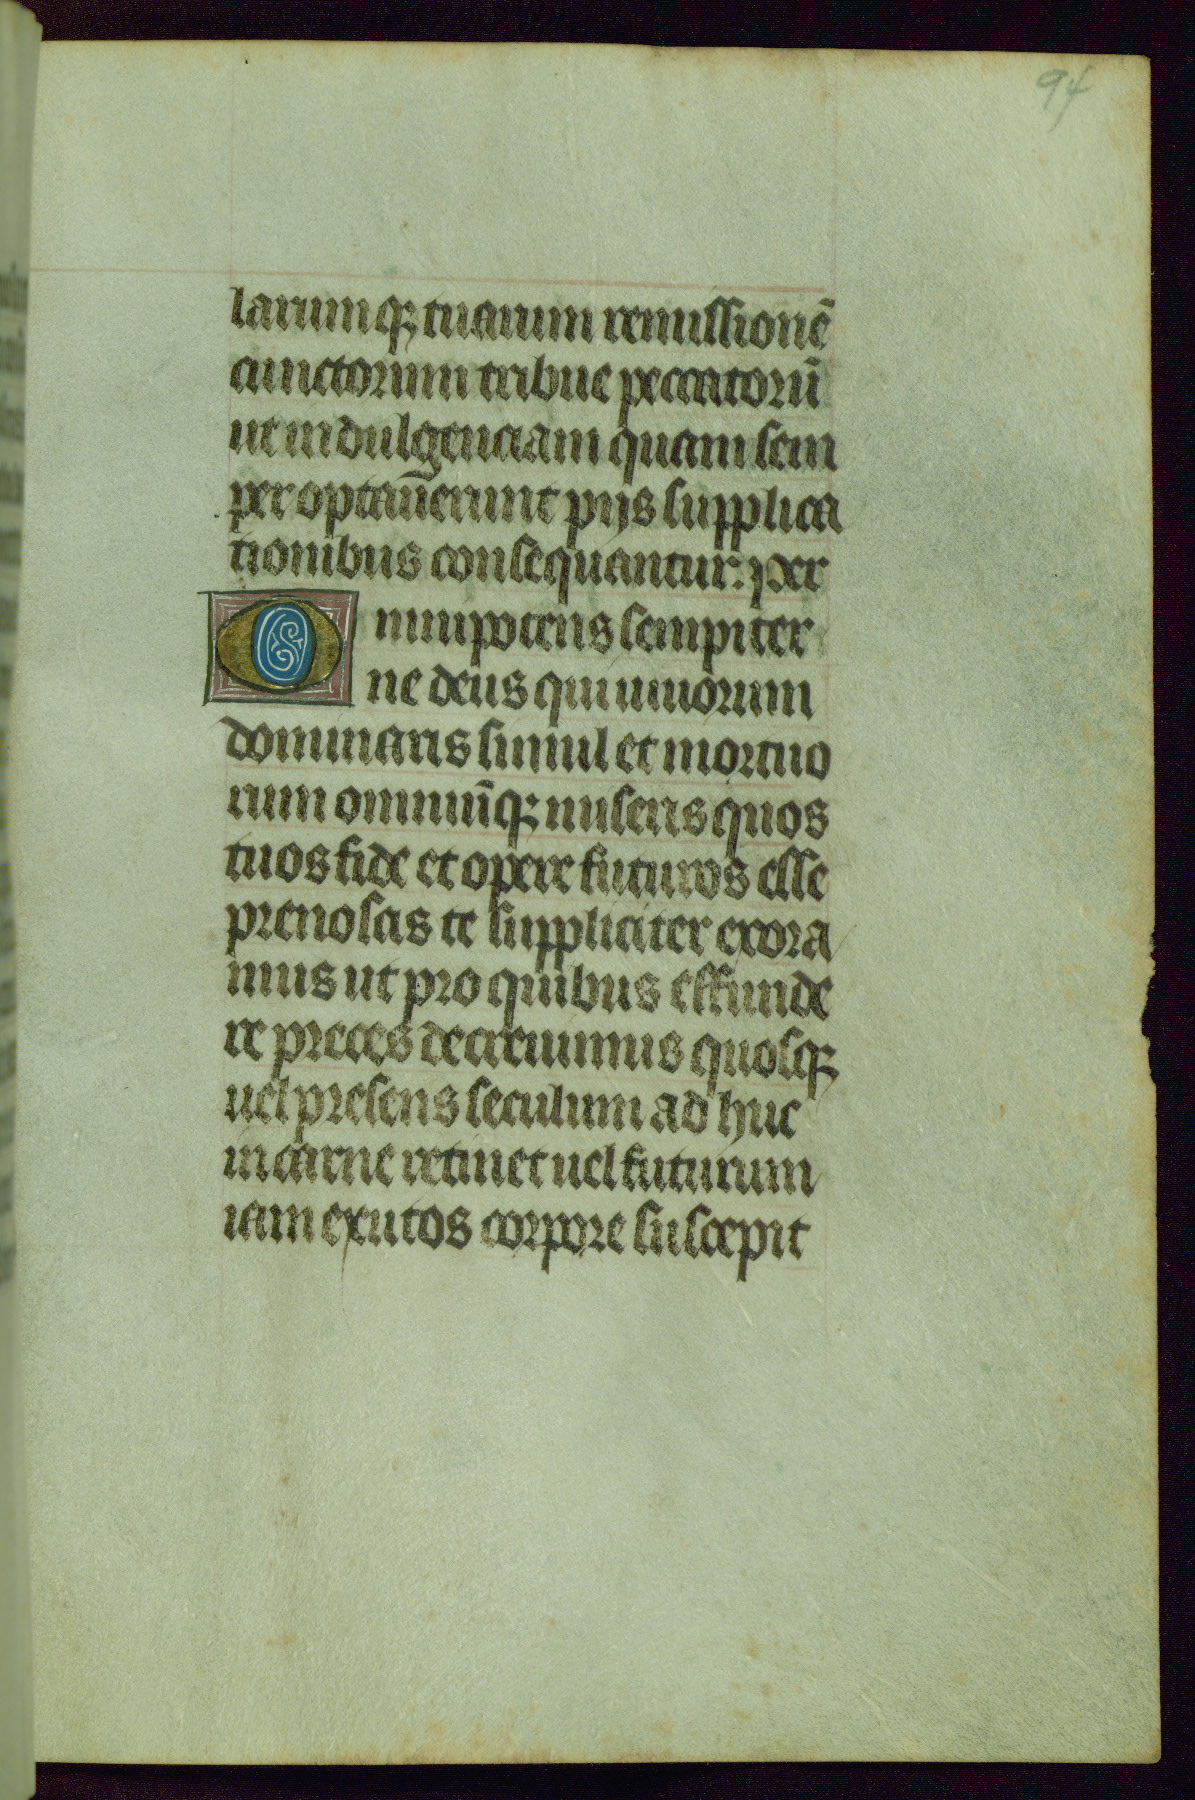 94
larumq; tuarum remissionē
cunctorum tribue peccatorū
ut indulgenciam quam sem
per optaūerunt pijs supplica
tionibus consequantur. per
Omnipotens sempiter
ne deus qui uiuorum
dominaris simul et mortuo
rum omniūq; misereris quos
tuos fide et opere futuros esse
prenoscis te suppliciter exora
mus ut pro quibus effunde
re preces decreuimus quosq;
uel presens seculum ad huc
in carne retinet uel futurum
iam exutos corpore suscepit